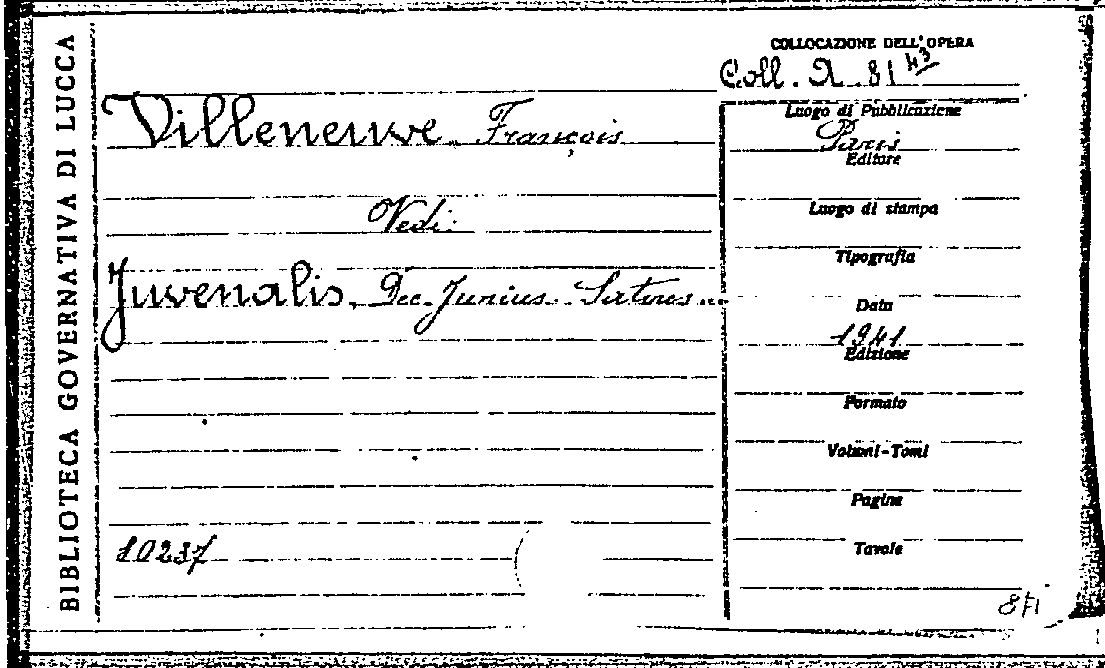 BIBLIOTECA GOVERNATIVA DI LUCCA
COLLOCAZIONE DELL'OPERA
Coll. A. 81 43
Villeneuve François
Luogo di Pubblicazione
Paris
Editore
Vedi:
Luogo di stampa
Tipografia
Juvenalis, Dec. Junius. Satires...
Data
1941
Edizione
Formato
Volumi-Tomi
Pagine
10237
Tavole